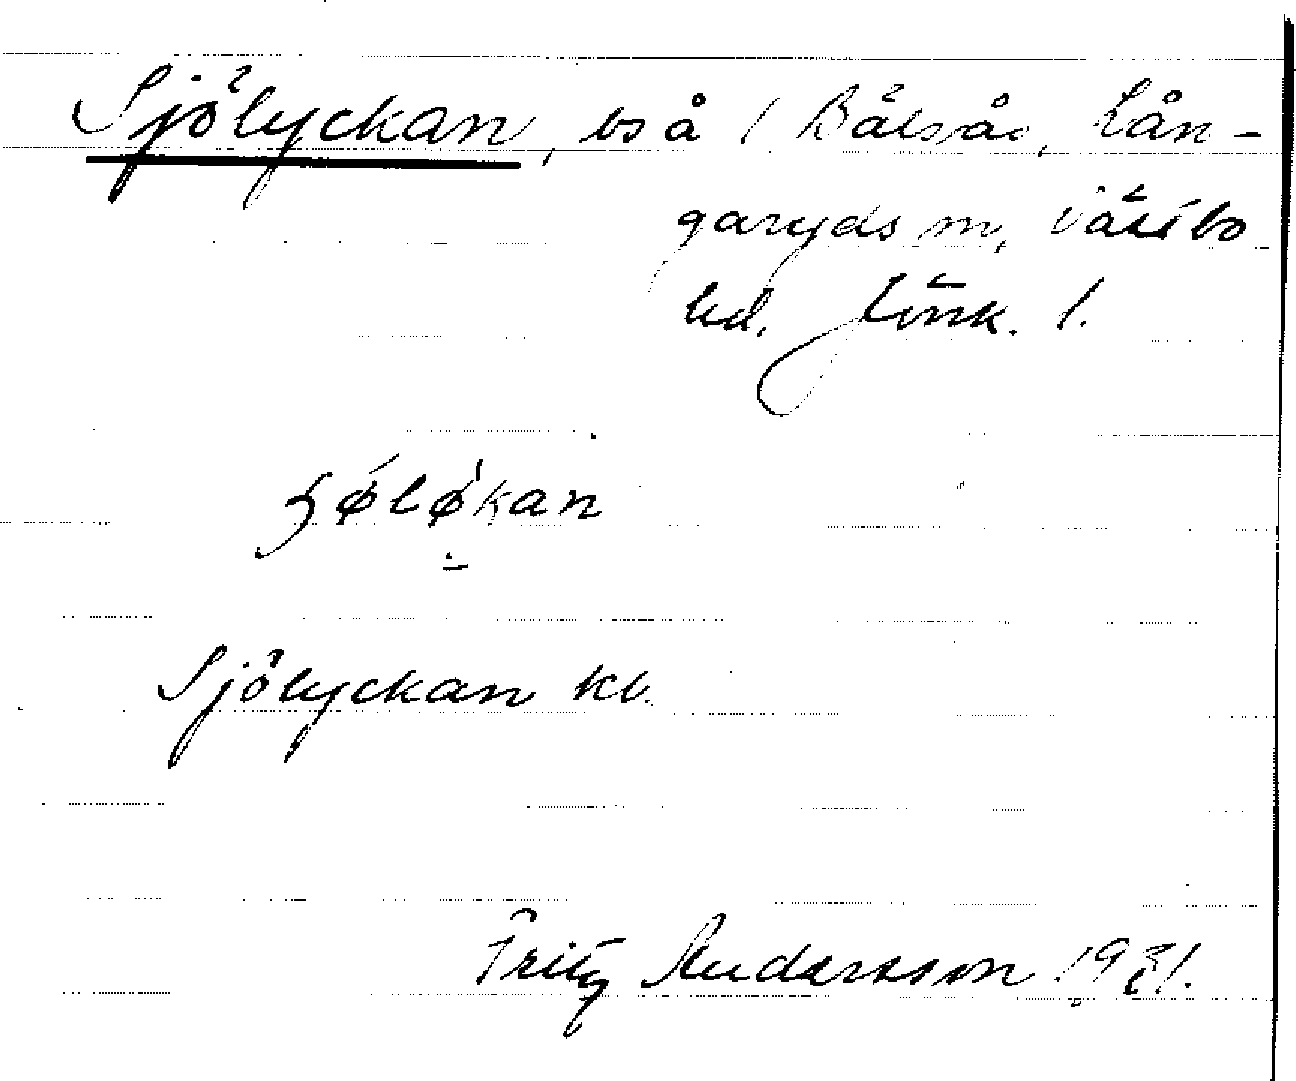 Sjölyckan, bs å / Bälsås, Lån-
garyds sn, Västbo
hd. Jönk. l.
ʃøløkan
Sjölyckan kl.
Fritz Andersson 1931.